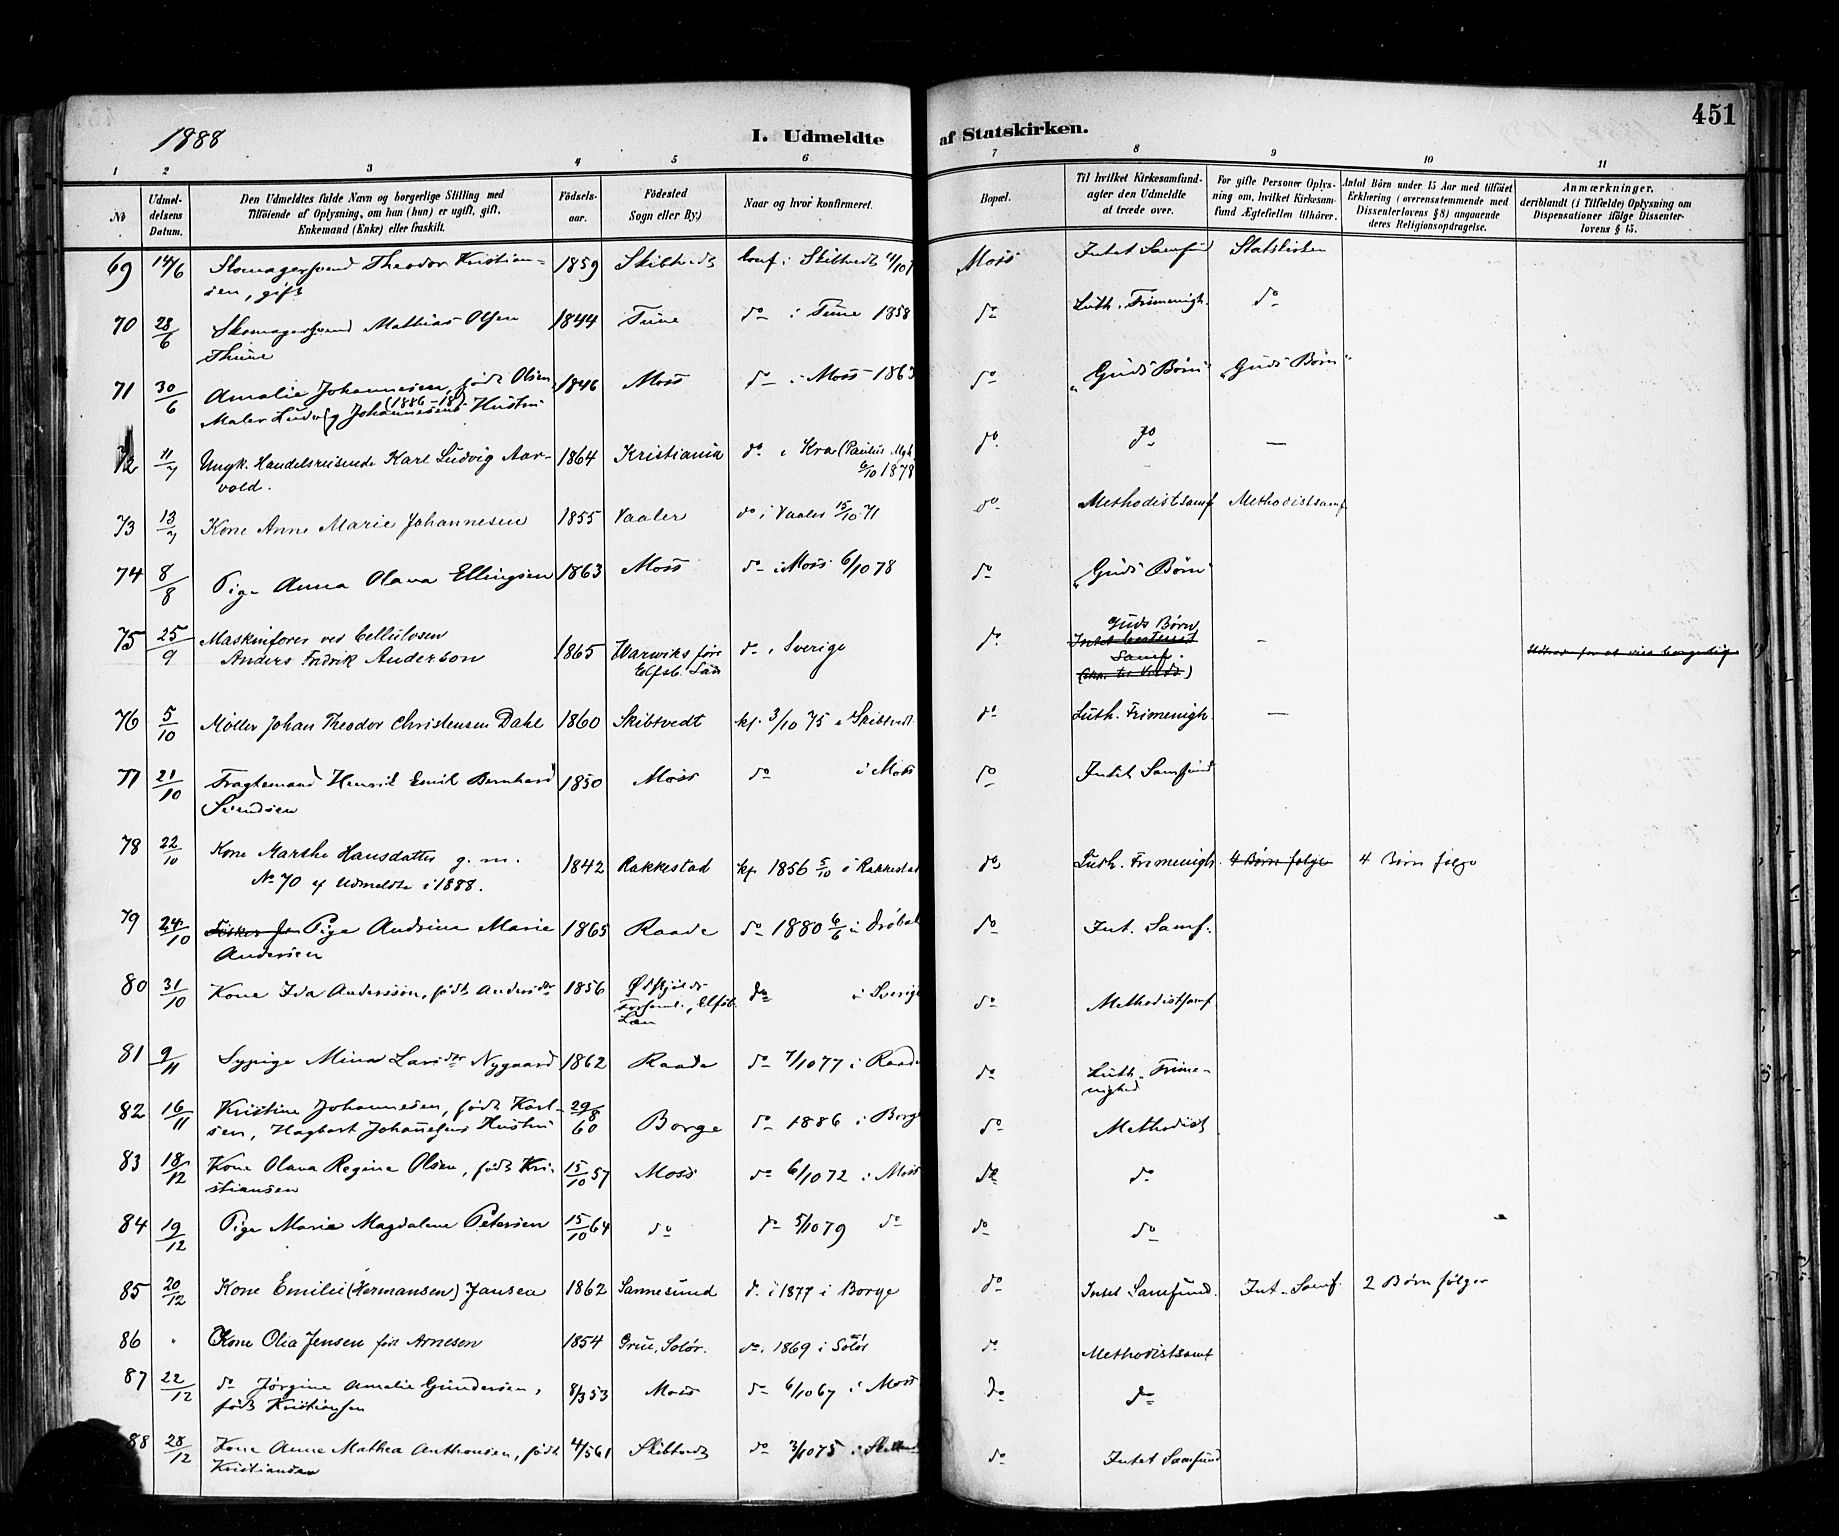 451
1888
I. Udmeldte af Statskirken.
1 2 3 4 5 6 7 8 9 10 11
No
Udmeldelsens Datum.
Den Udmeldtes fulde Navn og borgerlige Stilling med
Tilföiende af Oplysning, om han (hun) er ugift, gift,
Enkemand (Enke) eller fraskilt.
Födselsaar.
Födested
Sogn eller By.)
Naar og hvor konfirmeret.
Bopæl.
Til hvilket Kirkesamfund
agter den Udmeldte
at træde over.
For gifte Personer Oplysning om, hvilket Kirkesamfund Ægtefællen tilhörer.
Antal Börn under 15 Aar med tilföiet
Erklæring (overensstemmende med
Dissenterlovens § 8) angaaende
deres Religionsopdragelse.
Anmærkninger,
deriblandt (i Tilfælde) Oplysning om
Dispensationer ifölge Dissenterlovens § 15.
69 14/6 Skomagersvend Theodor Kristian= 1859 Skibtvedt Conf. i Skibtvedt Moss Intet Samfund Statskirken
sen, gift
70 28/6 Skomagersvend Mathias Olsen 1844 Tune do i Tune 1858 do Luth. Frimenigh. do
Thune
71 30/6 Amalie Johannesen, født Olsen 1846 Moss do i Moss 1863 do "Guds Børn" "Guds Børn"
Maler Ludvig Johannesens Hustru (1886-18)
72 11/7 Ungk. Handelsreisende Karl Ludvig Aar- 1864 Kristiania do i Kra (Paulus Mgh. do do —
vold. 6/10 1878
73 13/7 Kone Anne Marie Johannesen 1855 Vaaler do i Vaaler 15/10 71 do Methodistsamf. Methodistsamf.
74 8/8 Pige Anna Olava Ellingsen 1863 Moss do i Moss 6/10 78 do "Guds Børn"
75 25/9 Maskinfører ved Cellulosen 1865 do i Sverige do Guds Børn —
Anders Fredrik Anderson
Samf.
76 5/10 Møller Johan Theodor Christensen Dahl 1860 Skibtvedt kf. 3/10 75 i Skibtvedt do Luth. Frimenigh. —
77 21/10 Fragtemand Henrik Emil Bernhard 1850 Moss do i Moss do Intet Samfund
Svendsen
78 22/10 Kone Marthe Hansdatter g. m. 1842 Rakkestad kf. 1856 5/10 i Rakkestad do Luth. Frimenigh. 4 Børn følger 4 Børn følge
No 70 af Udmeldte i 1888.
79 24/10 Pige Andrine Marie 1865 Raade do 1880 6/6 i Drøbak do Int. Samf.
Andersen
80 31/10 Kone Ida Andersson, født Andersdr 1856 do i Sverige do Methodistsamf
Forsaml., Elfsb.
Län
81 9/11 Sypige Mina Larsdtr Nygaard 1862 Raade do 7/10 77 i Raade do Luth. Frime-
nighed
82 16/11 Kristine Johannesen, født Karl- 29/8 60 Borge do 1886 i Borge do Methodist
sen, Hagbart Johannesens Hustru
83 18/12 Kone Olava Regine Olsen, født Kri- 15/10 57 Moss do 6/10 72 i Moss do do
stiansen
84 19/12 Pige Marie Magdalene Petersen 15/10 64 do do 5/10 79 do do do
85 20/12 Kone Emilie (Hermansen) Jansen 1862 Sannesund do i 1877 i Borge do Intet Samfund. Int. Samf. 2 Børn følger
86 " Kone Olea Jensen født Arnesen 1854 Grue, Solør. do. 1869 i Solør do Methodistsamf
87 22/12 do Jørgine Amalie Gundersen, 8/3 53 Moss do 6/10 67 i Moss do do
født Kristiansen
88 28/12 Kone Anne Mathea Anthonsen, født 4/5 61 Skibtvedt do 3/10 75 i do Intet Samfund
Kristiansen